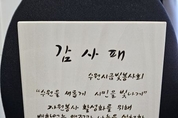 감사패
수원시금빛봉사회
"수원을 새롭게 시민을 빛나게"
자원봉사 활성화를 위해